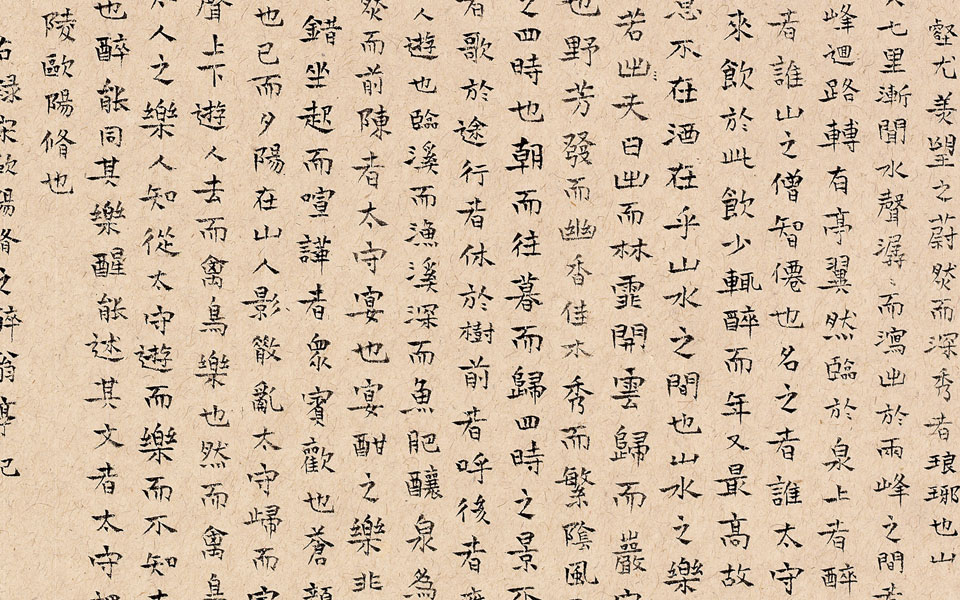 壑尤美望之蔚然而深秀者琅琊也山
七里漸聞水聲潺〻而瀉出於兩峰之間者
峰迴路轉有亭翼然臨於泉上者醉
者誰山之僧智僊也名之者誰太守
來飲於此飲少輒醉而年又最高故
意不在酒在乎山水之間也山水之樂
若出夫日出而林霏開雲歸而巖穴
也野芳發而幽香佳木秀而繁陰風
之四時也朝而往暮而歸四時之景不
者歌於途行者休於樹前者呼後者應
人遊也臨溪而漁溪深而魚肥釀泉為
然而前陳者太守宴也宴酣之樂非
錯坐起而喧譁者眾賓歡也蒼顏
也已而夕陽在山人影散亂太守歸而賓
聲上下遊人去而禽鳥樂也然而禽鳥
人之樂人知從太守遊而樂而不知太
也醉能同其樂醒能述其文者太守
陵歐陽脩也
右錄宋歐陽脩之醉翁亭記